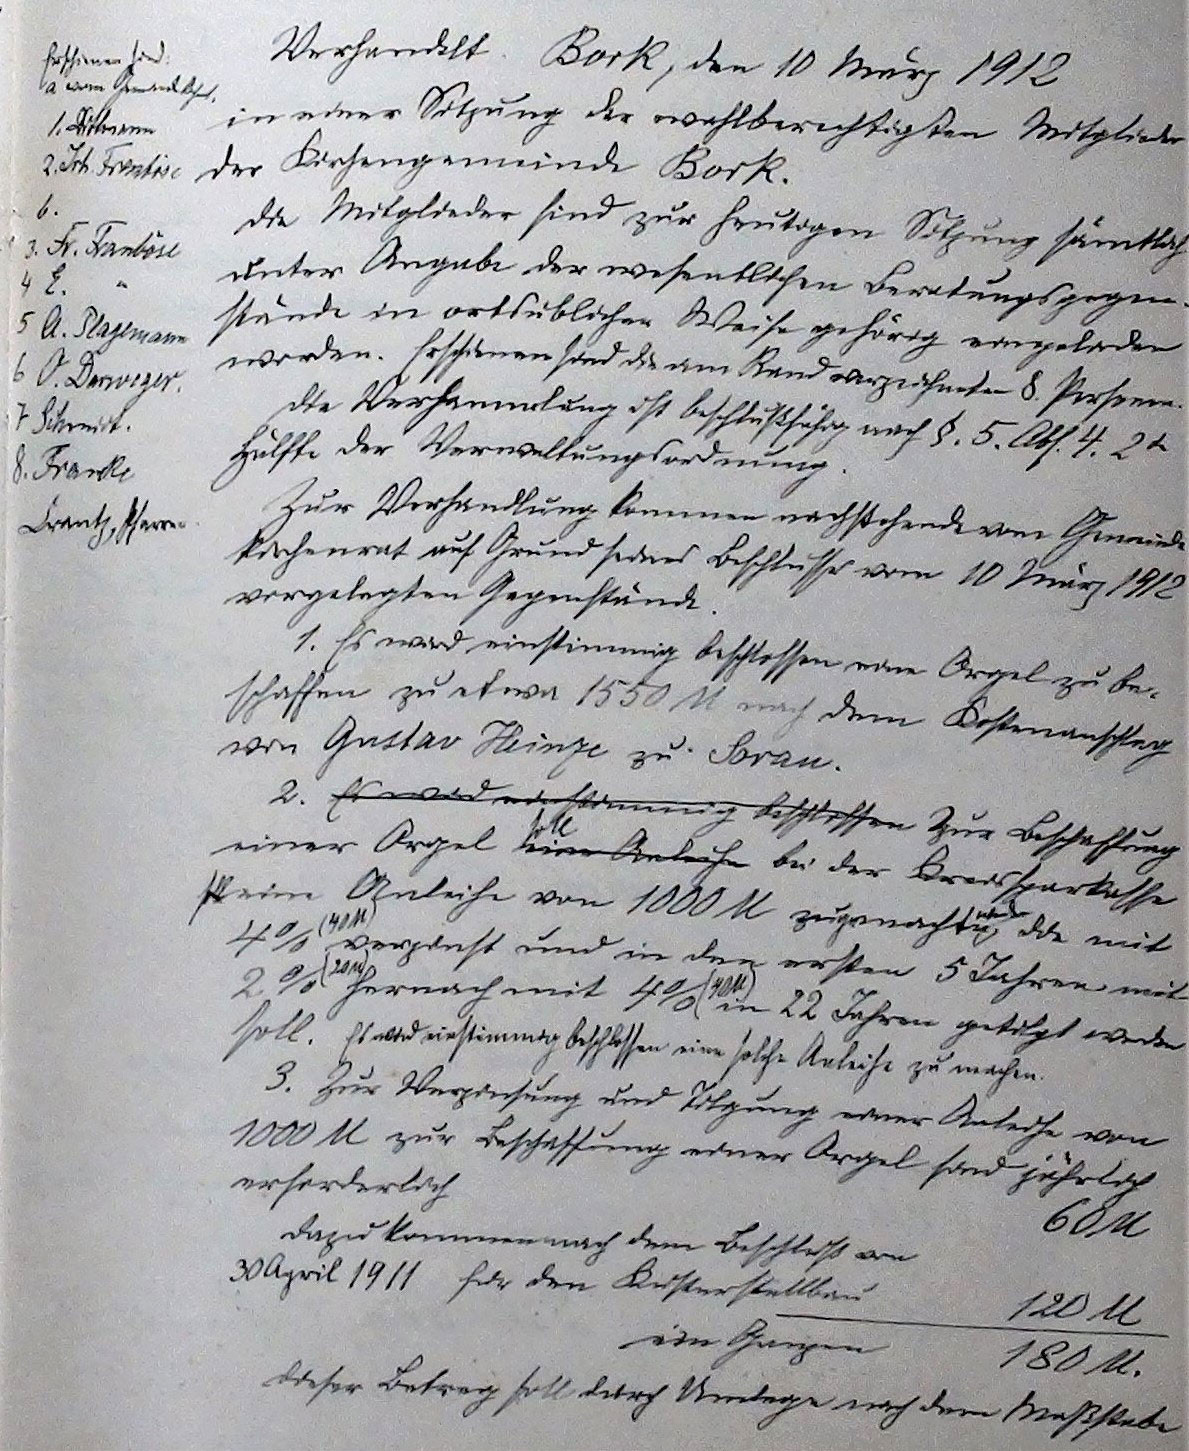 Erschienen sind:
a vom Gemeindekirchr.
1. Dittmann
2. Joh. Framböse
b.
3. Fr. Framböse
4 E. "
5 A. Plagemann
6 O. Derweger.
7 Schmidt.
8. Franke
Crantz, Pfarrer.
Verhandelt. Bork, den 10 März 1912
in einer Sitzung der wahlberechtigten Mitglieder
der Kirchengemeinde Bork.
Die Mitglieder sind zur heutigen Sitzung sämtlich
unter Angabe der wesentlichen Beratungsgegen-
stände in ortsüblicher Weise gehörig eingeladen
worden. Erschienen sind die am Rand verzeichneten 8. Personen.
Die Versammlung ist beschlußfähig nach §. 5. Abs. 4. 2te
Hälfte der Verwaltungsordnung.
Zur Verhandlung kommen nachstehende vom Gemeinde
kirchenrat auf Grund seines Beschlusses vom 10 März 1912
vorgelegten Gegenstände.
1. Es wird einstimmig beschlossen eine Orgel zu be-
schaffen zu etwa 1550 M nach dem Kostenanschlag
von Gustav Heinze zu Sorau.
2. Es wird einstimmig beschlossen Zur Beschaffung
einer Orgel soll eine Anleihe bei der Kreissparkasse
eine Anleihe von 1000 M gemacht werden die mit
4% (40 M) verzinst und in den ersten 5 Jahren mit
2% (20 M) hernach mit 4% (40 M) in 22 Jahren getilgt werden
soll. Es wird einstimmig beschlossen eine solche Anleihe zu machen.
3. Zur Verzinsung und Tilgung einer Anleihe von
1000 M zur Beschaffung einer Orgel sind jährlich
erforderlich 60 M
dazu kommen nach dem Beschluß von
30 April 1911 für den Küsterstallbau 120 M
im Ganzen 180 M.
Dieser Betrag soll durch Umlage nach dem Maßstabe